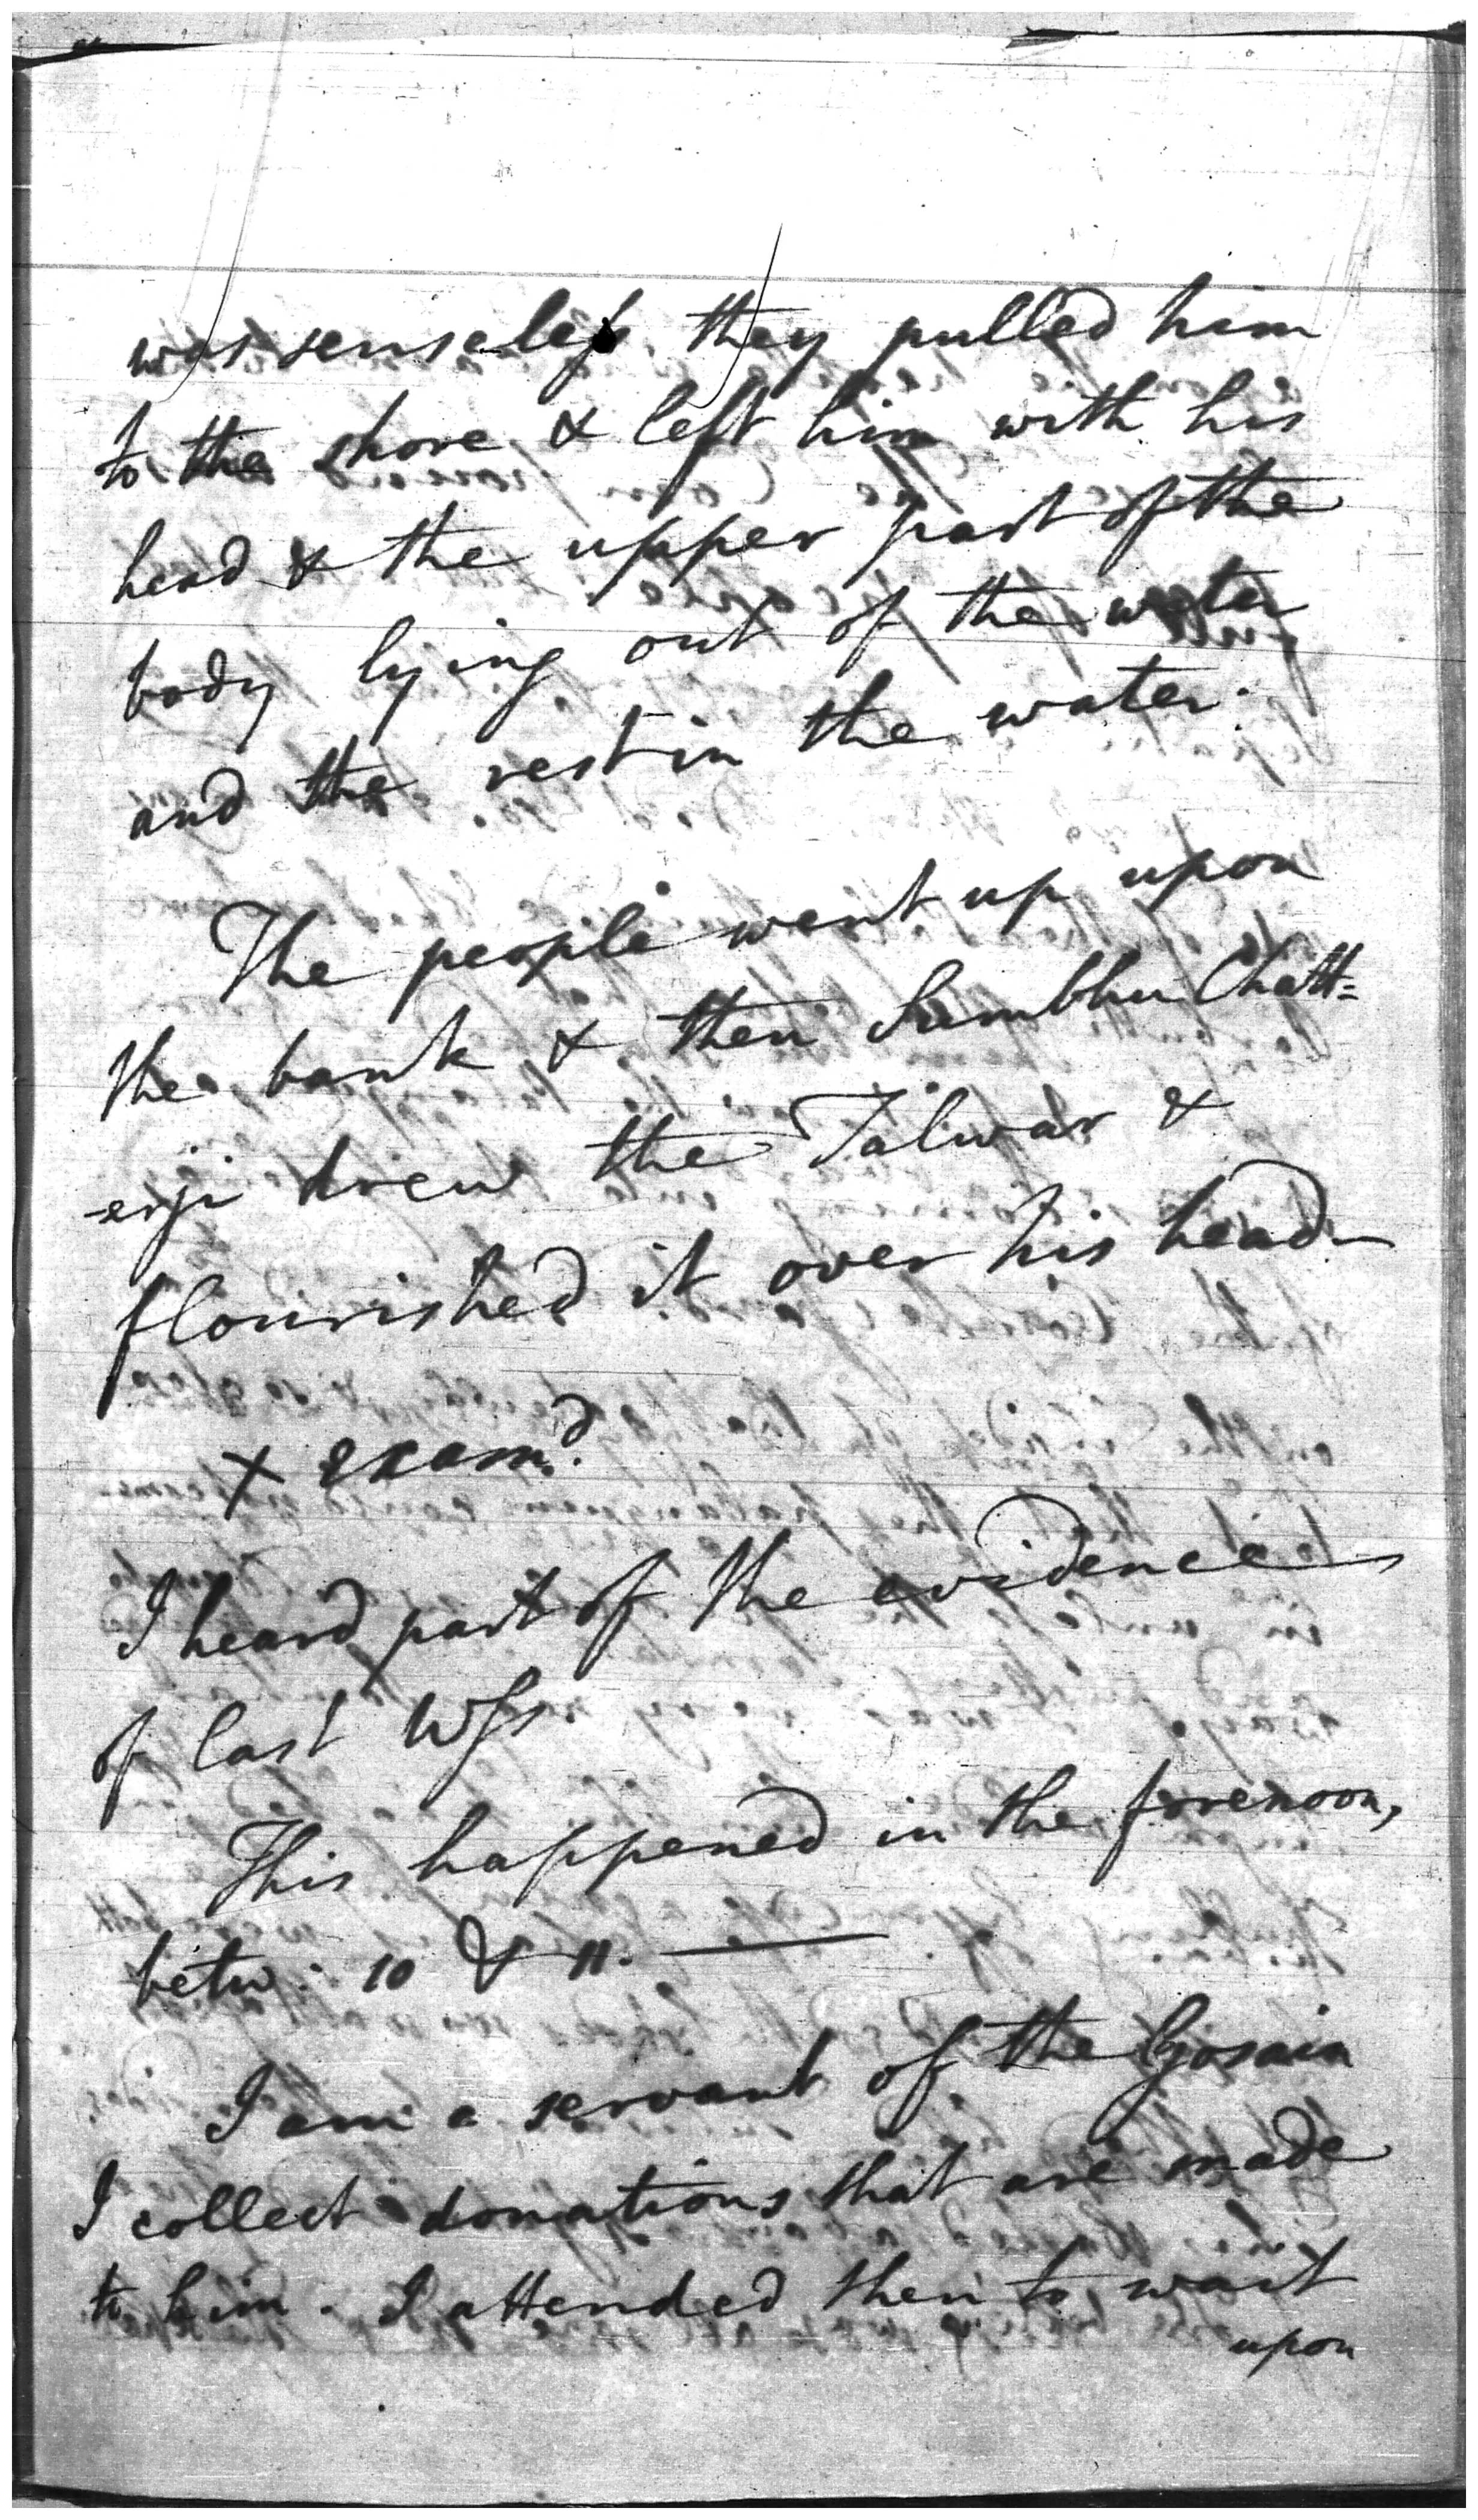 was senseless they pulled him
to the shore & left him with his
head & the upper part of the
body lying out of the water
and the rest in the water.
The people went up upon
the bank & then Sumbhu Chatt=
-erji drew the Talwar &
flourished it over his head
x examd.
I heard part of the evidence
of last Wss
This happened in the forenoon,
betw: 10 & 11. —
I am a servant of the Gosain
I collect donations that are made
to him. I attended then to wait
upon